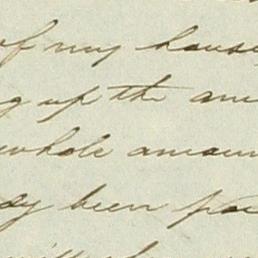 of my house
up the am
whole amoun
been pai